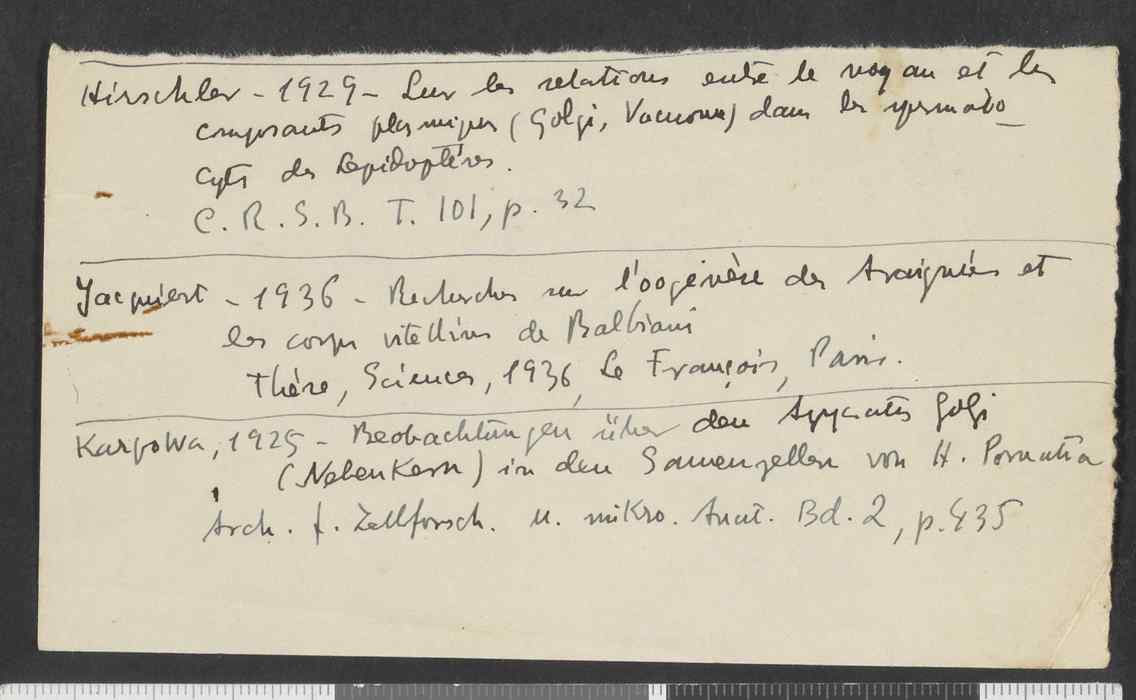 Hirschler - 1929 - Sur les relations entre le noyau et les
composants plasmiques (Golgi, Vacuome) dans les spermato
cyts des Lepidoptères.
C. R. S. B. T. 101, p. 32
Jacquiert - 1936 - Recherches sur l'oogénèse des Araignées et
les corps vitellins de Balbiani
Thèse, Sciences, 1936, Le François, Paris.
Karpowa, 1925 - Beobachtungen über den Apparats Golgi
(Nebenkern) in den Samenzellen von H. Pomatia
Arch. f. Zellforsch. u. mikro. Anat. Bd. 2, p. 435